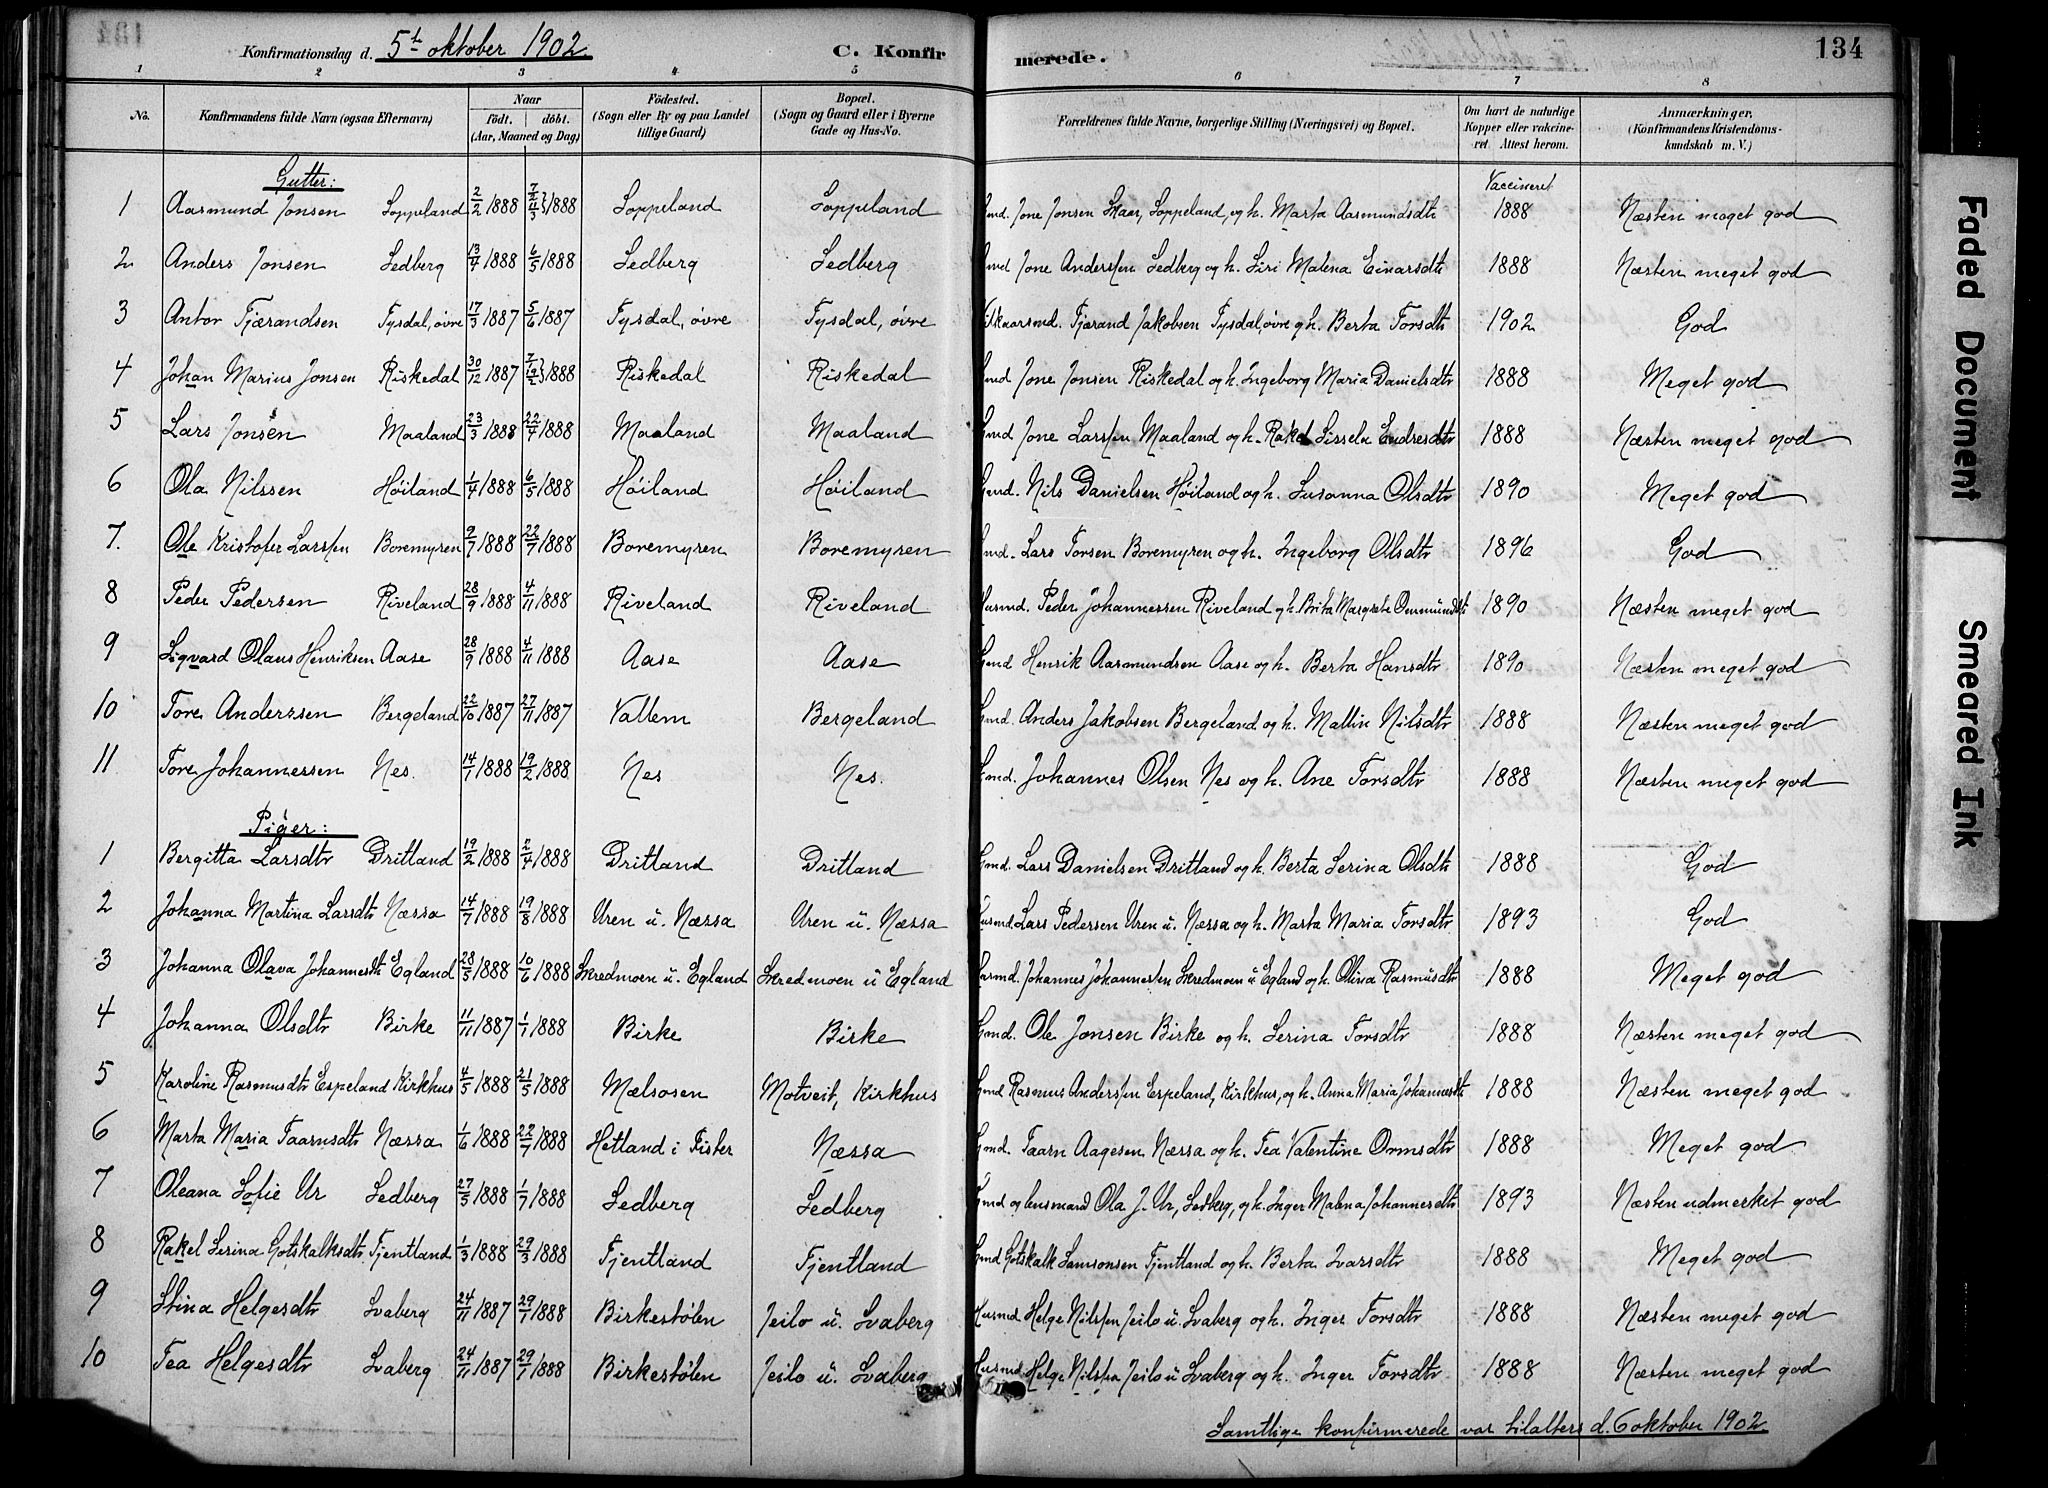 134
Konfirmationsdag d. 5t oktober 1902 C. Konfirmerede.
1 2 3 4 5 6 7 8
No. Konfirmandens fulde Navn (ogsaa Efternavn) Naar födt. döbt. (Aar, Maaned og Dag) Födested. (Sogn eller By og paa Landet tillige Gaard) Bopæl. (Sogn og Gaard eller i Byerne Gade og Hus-No. Forældrenes fulde Navne, borgerlige Stilling (Næringsvei) og Bopæl. Om havt de naturlige Kopper eller vakcineret. Attest herom. Anmærkninger. (Konfirmandens Kristendomskundskab m. V.)
Gutter: Vaccineret
1 Aasmund Jonsen Soppeland 2/2 1888 7/2 11/3 } 1888 Soppeland Soppeland Gmd. Jone Jonsen Skaar, Soppeland, og h. Marta Aasmundsdtr 1888 Næsten meget god
2 Anders Jonsen Sedberg 13/4 1888 6/5 1888 Sedberg Sedberg Gmd Jone Anderssen Sedberg og h. Siri Malena Einarsdtr 1888 Næsten meget god
3 Anton Tjærandsen Tysdal, øvre 17/3 1887 5/6 1887 Tysdal, øvre Tysdal, øvre Tjærand Jakobsen Tysdal, øvre og h. Berta Torsdtr 1902 God
4 Johan Marius Jonsen Riskedal 30/12 1887 7/1 19/2 } 1888 Riskedal Riskedal Gmd Jone Jonsen Riskedal og h. Ingeborg Maria Danielsdtr 1888 Meget god
5 Lars Jonsen Maaland 23/3 1888 22/4 1888 Maaland Maaland Gmd Jone Larssen Maaland og h. Rakel Sissela Endresdtr 1888 Næsten meget god
6 Ola Nilssen Høiland 1/4 1888 6/5 1888 Høiland Høiland Gmd. Nils Danielsen Høiland og h. Susanna Olsdtr 1890 Meget god
7. Ole Kristofer Larssen Boremyren 9/7 1888 22/7 1888 Boremyren Boremyren Gmd. Lars Torsen Boremyren og h. Ingeborg Olsdtr 1896 God
8 Peder Pedersen Riveland 28/9 1888 4/11 1888 Riveland Riveland Husmd. Peder Johannessen Riveland og h. Brita Margrete Ommundsdtr 1890 Næsten meget god
9 Sigvard Olaus Henriksen Aase 28/9 1888 4/11 1888 Aase Aase Gmd Henrik Aasmundsen Aase og h. Berta Hansdtr 1890 Næsten meget god
10 Tore Anderssen Bergeland 22/10 1887 27/11 1887 Vallem Bergeland Gmd. Anders Jakobsen Bergeland og h. Mallin Nilsdtr 1888 Næsten meget god
11 Tore Johannessen Nes. 14/1 1888 19/2 1888 Nes Nes. Gmd. Johannes Olsen Nes og h. Ane Torsdtr 1888 Næsten meget god
Piger:
1 Bergitta Larsdtr Dritland 19/2 1888 2/4 1888 Dritland Dritland Gmd. Lars Danielsen Dritland og h. Berta Serina Olsdtr 1888 God
2 Johanna Martina Larsdtr Næssa 14/7 1888 19/8 1888 Uren u. Næssa Uren u. Næssa Husmd. Lars Pedersen Uren u. Næssa og h. Marta Maria Torsdtr 1893 God
3 Johanna Olava Johannesdtr Egland 28/5 1888 10/6 1888 Skredmoen u. Egland Skredmoen u Egland Husmd. Johannes Johannessen Skredmoen u Egland og h. Olina Rasmusdtr 1888 Meget god
4 Johanna Olsdtr Birke 11/11 1887 1/1 1888 Birke Birke Gmd. Ole Jonsen Birke og h. Serina Torsdtr 1888 Næsten meget god
5 Karoline Rasmusdtr Espeland Kirkhus 4/5 1888 21/5 1888 Mælsosen Motveit, Kirkhus Gmd Rasmus Anderssen Espeland, Kirkhus, og h. Anna Maria Johannesdtr 1888 Næsten meget god
6 Marta Maria Taarnsdtr Næssa 1/6 1888 22/7 1888 Hetland i Fister Næssa Gmd. Taarn Aagesen Næssa og h. Tea Valentine Ormsdtr 1888 Meget god
7 Oleana Sofie Ur Sedberg 27/5 1888 1/7 1888 Sedberg Sedberg Gmd og lensmand Ola J. Ur, Sedberg, og h. Inger Malena Johannesdtr 1893 Næsten udmerket god
8 Rakel Serina Gotskalksdtr Tjentland 1/3 1888 29/3 1888 Tjentland Tjentland Gmd Gotskalk Samsonsen Tjentland og h. Berta Ivarsdtr 1888 Meget god
9 Stina Helgesdtr Svaberg 24/11 1887 29/7 1888 Birkestølen Jeilo u. Svaberg Husmd Helge Nilssen Jeilo u. Svaberg og h. Inger Torsdtr 1888 Næsten meget god
10 Tea Helgesdtr Svaberg 24/11 1887 29/7 1888 Birkestølen Jeilo u. Svaberg Husmd Helge Nilssen Jeilo u Svaberg og h. Inger Torsdtr 1888 Næsten meget god
Samtlige konfirmerede var tilalters d. 6 oktober 1902
Faded Document
Smeared Ink